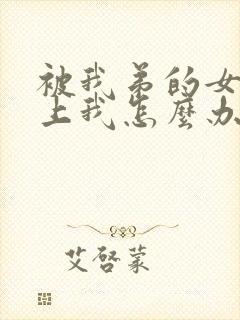 被我弟的女
上我怎麼办
艾啓蒙